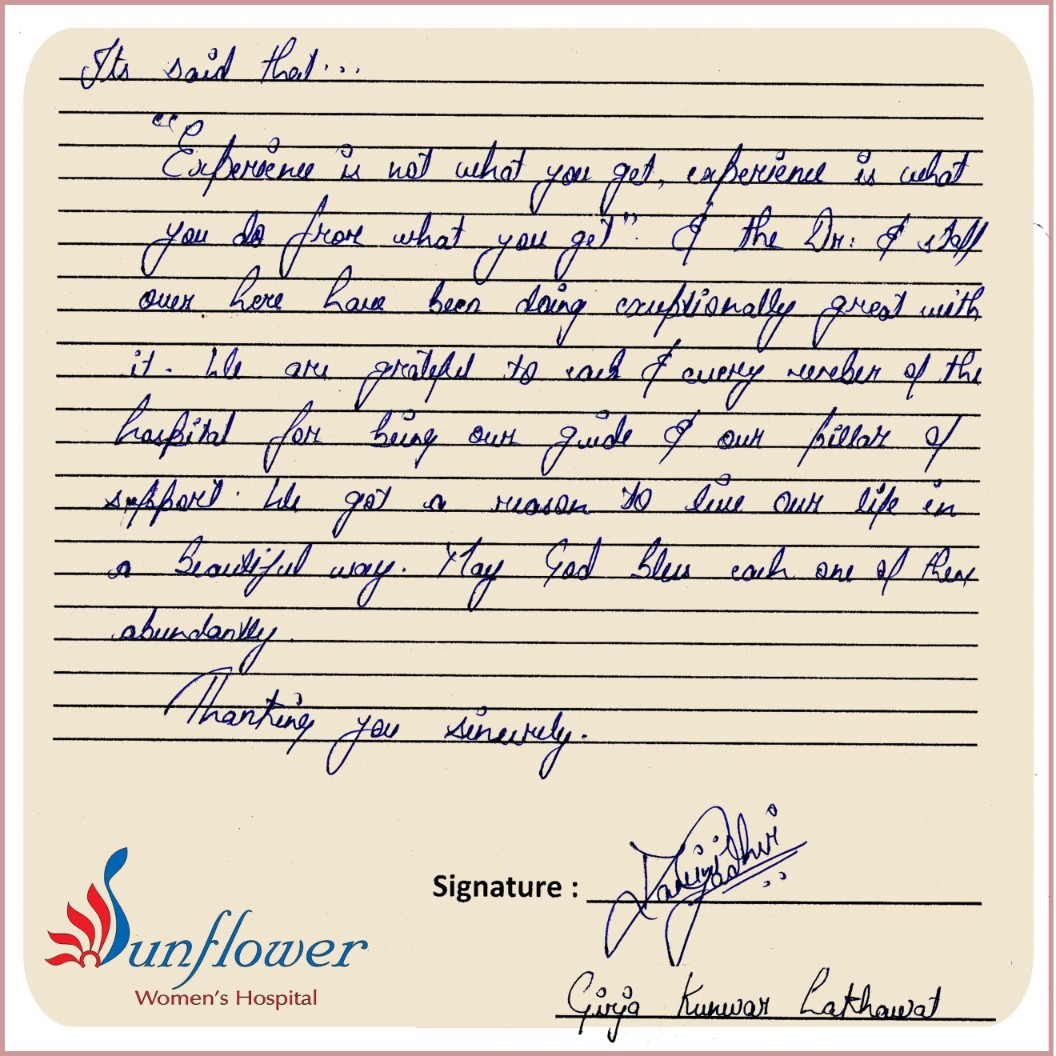 Its said that...
"Experience is not what you get, experience is what
you do from what you get". & the Dr. & staff
over here have been doing exceptionally great with
it. We are grateful to each & every member of the
hospital for being our guide & our pillar of
support. We got a reason to live our life in
a beautiful way. May God bless each one of them
abundantly.
Thanking you sincerely.
Signature :
Sunflower
Women's Hospital
Girja Kunwar Lakhawat